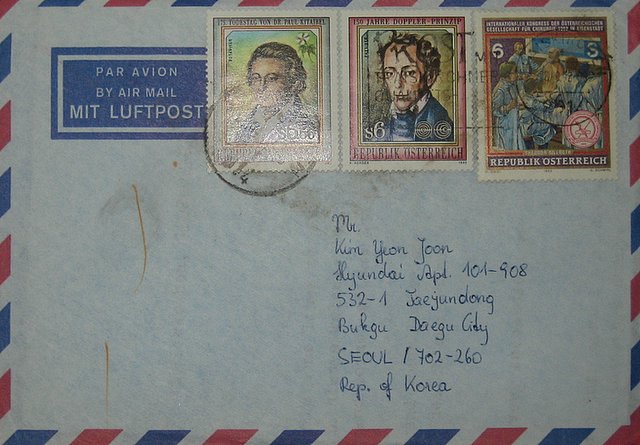 PAR AVION
BY AIR MAIL
MIT LUFTPOST
175. TODESTAG VON DR. PAUL KITAIBEL
REPUBLIK
150 JAHRE DOPPLER-PRINZIP
s6
REPUBLIK ÖSTERREICH
INTERNATIONALER KONGRESS DER ÖSTERREICHISCHEN
GESELLSCHAFT FÜR CHIRURGIE 1992 IN EISENSTADT
6 S
REPUBLIK ÖSTERREICH
Mr.
Kim Yeon Joon
Hyundai Apt. 101-908
532-1 Taejundong
Bukgu Daegu City
SEOUL / 702-260
Rep. of Korea